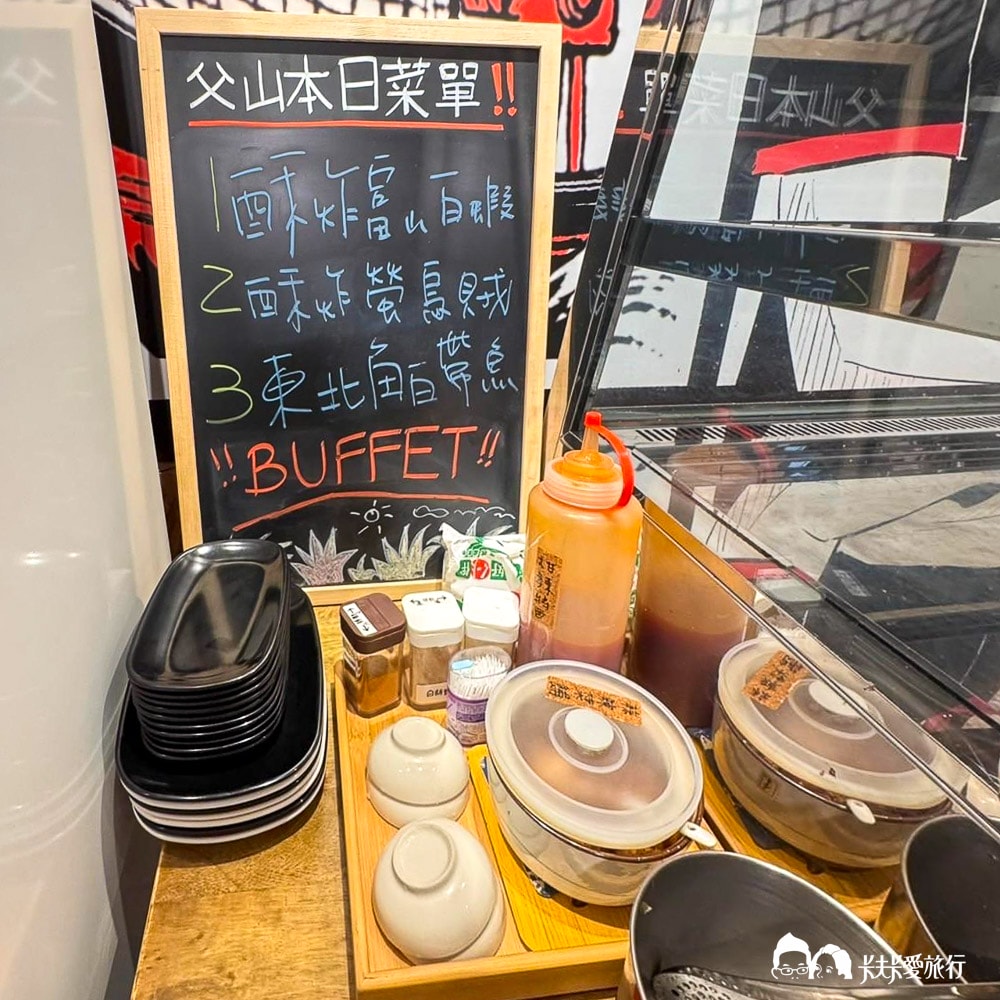 父山本日菜單!!
1酥炸富山白蝦
2酥炸螢烏賊
3東北角白帶魚
!!BUFFET!!
卡夫卡愛旅行